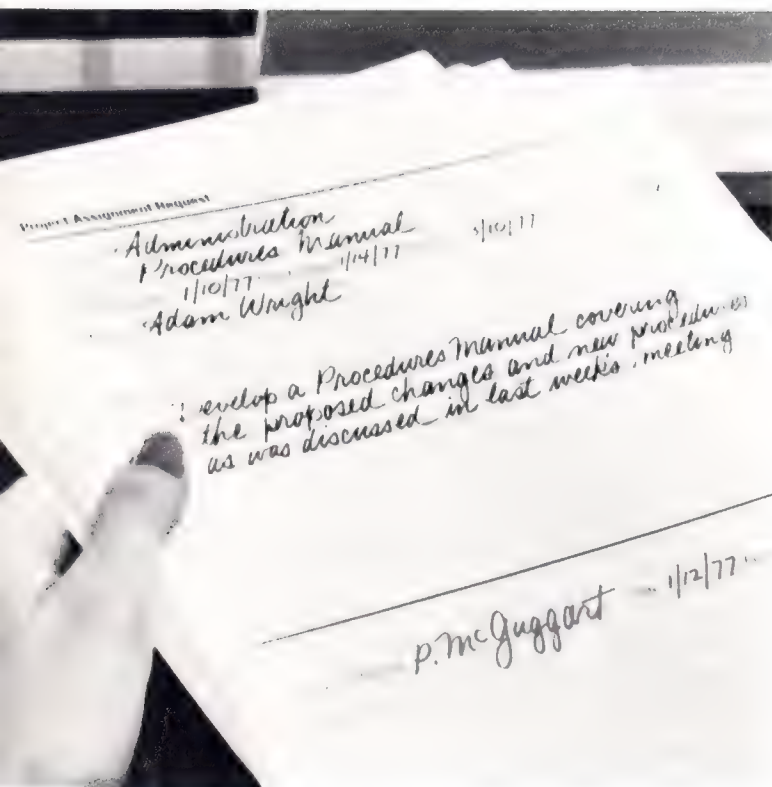 Project Assignment Request
Administration
Procedures Manual
1/10/77 1/14/77 3/10/77
Adam Wright
Develop a Procedures Manual covering
the proposed changes and new procedures
as was discussed in last week's meeting
P. McGuggart 1/12/77